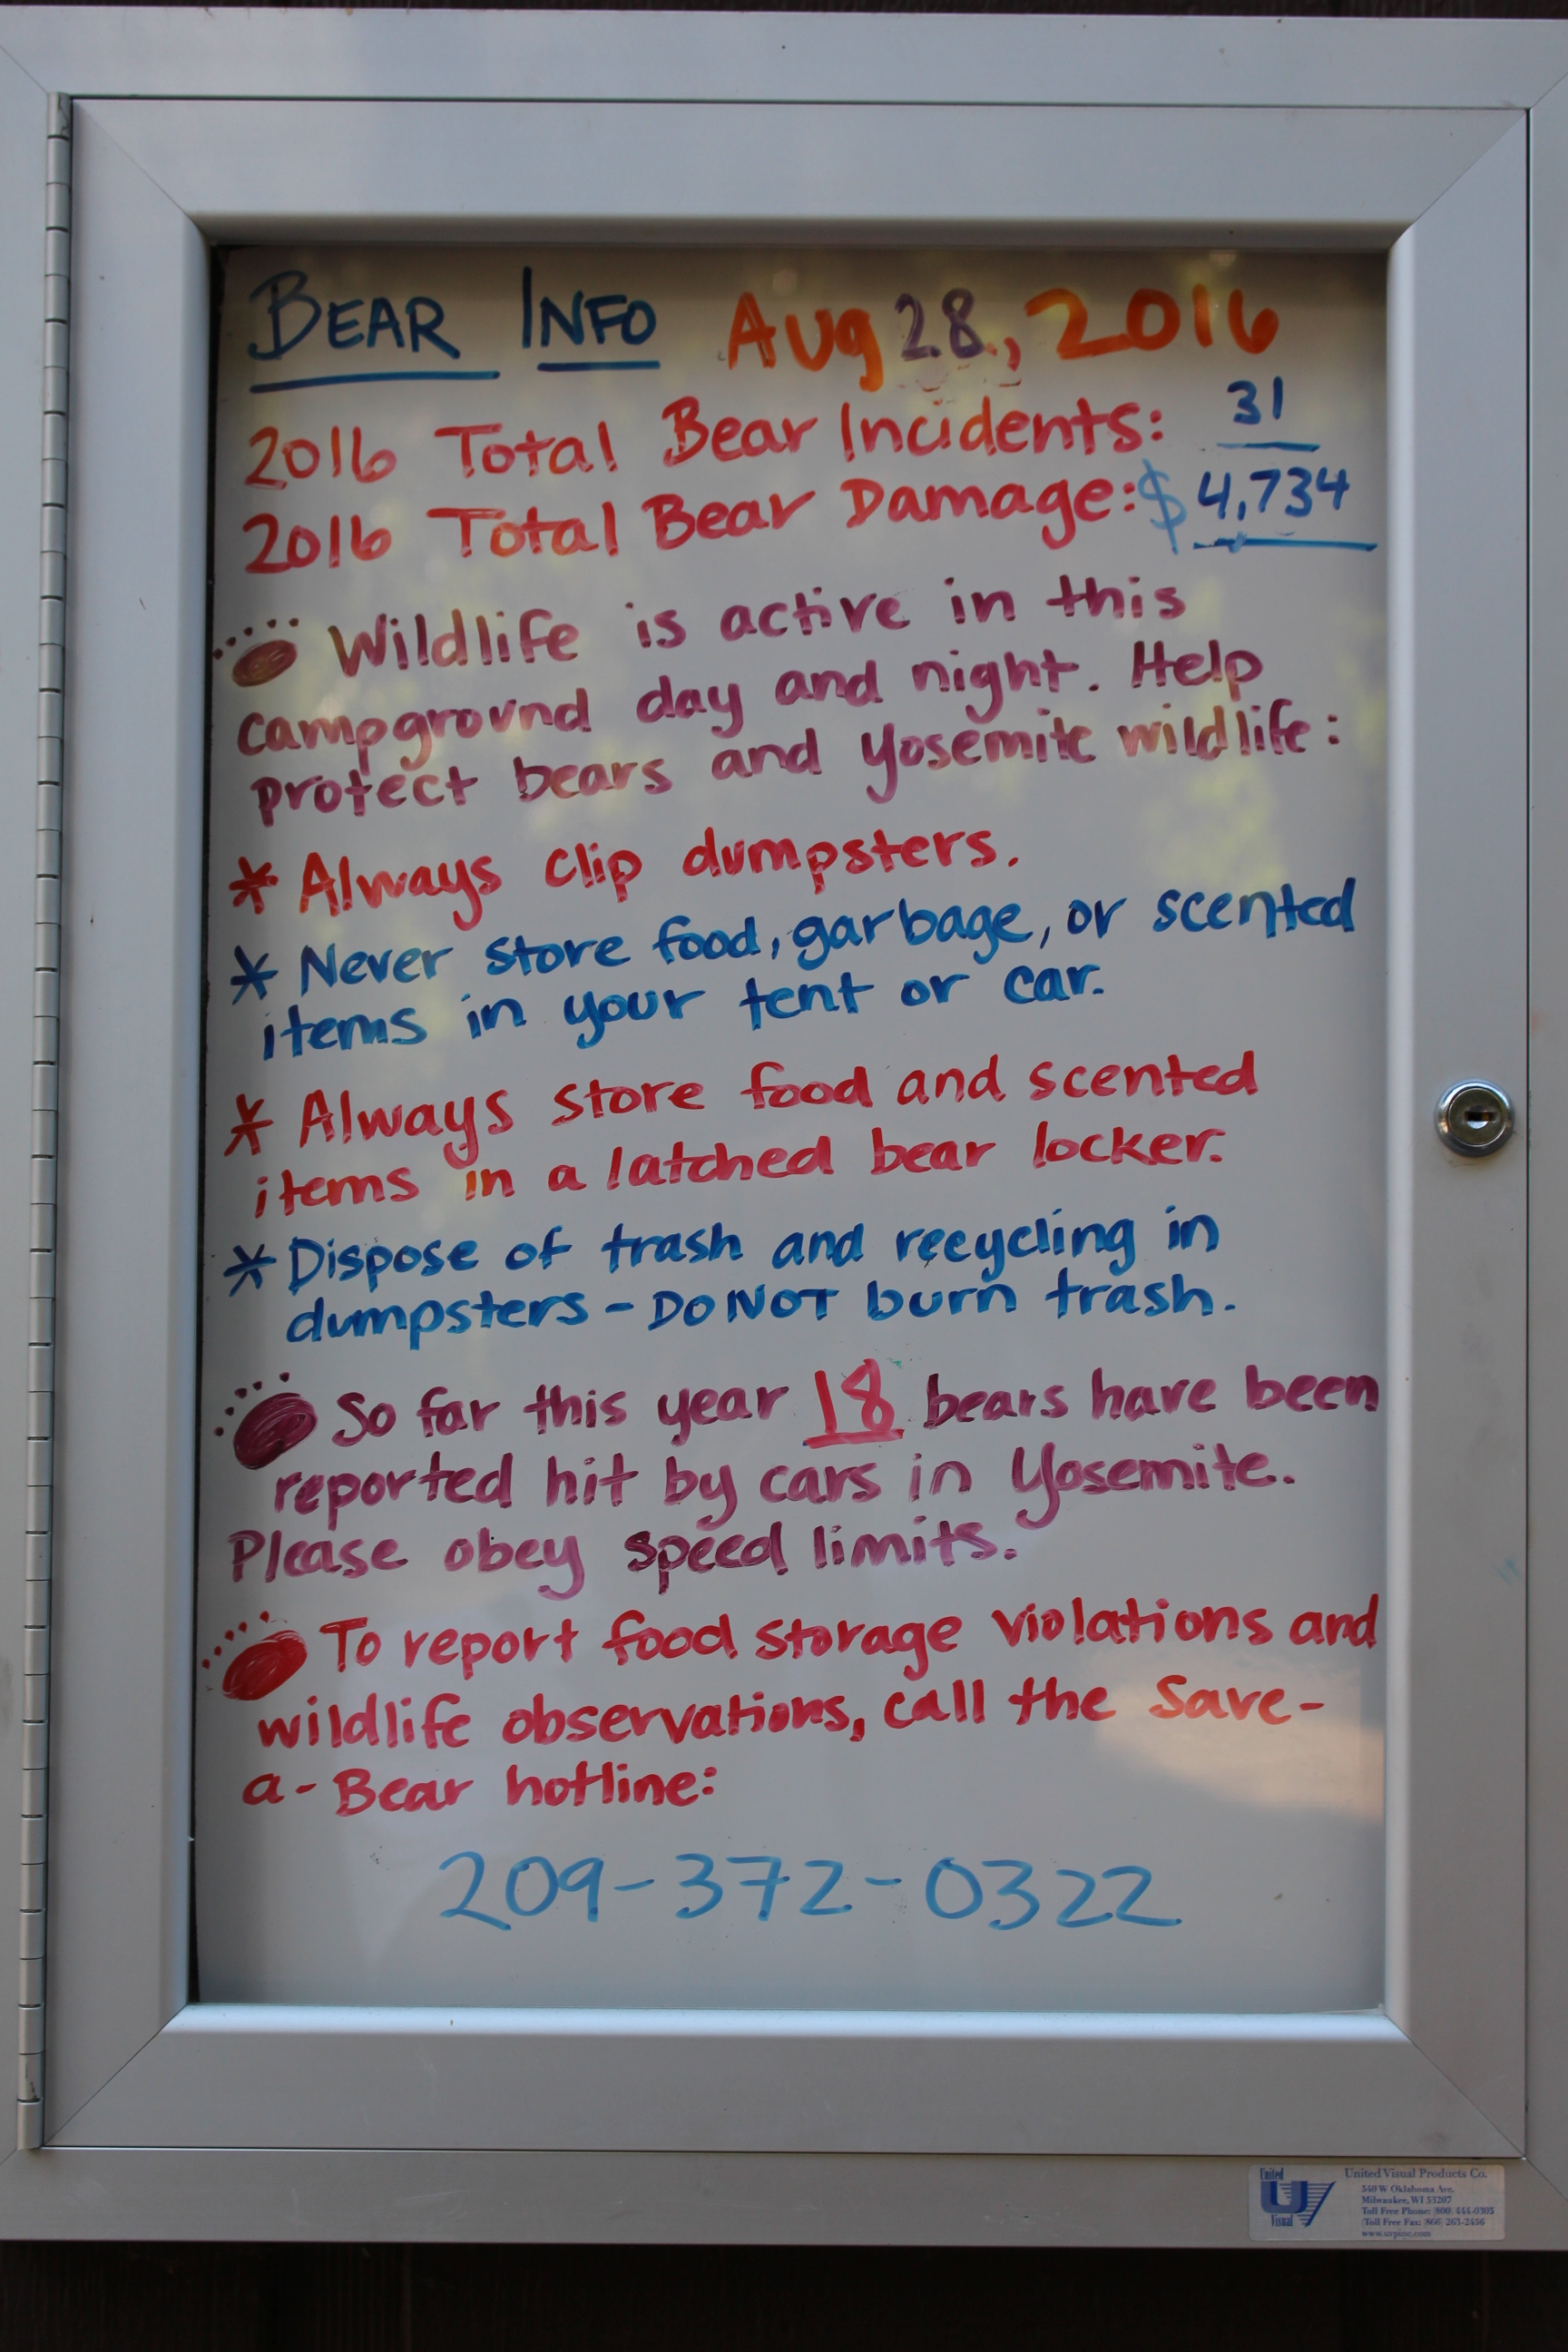 BEAR INFO Aug 28, 2016
2016 Total Bear Incidents: 31
2016 Total Bear Damage: $4,734
Wildlife is active in this
campground day and night. Help
protect bears and Yosemite wildlife:
* Always clip dumpsters.
* Never store food, garbage, or scented
items in your tent or car.
* Always store food and scented
items in a latched bear locker.
* Dispose of trash and recycling in
dumpsters - DO NOT burn trash.
So far this year 18 bears have been
reported hit by cars in Yosemite.
Please obey speed limits.
To report food storage violations and
wildlife observations, call the Save-
a-Bear hotline:
209-372-0322
United
UV
Visual
United Visual Products Co.
540 W Oklahoma Ave.
Milwaukee, WI 53207
Toll Free Phone: (800) 444-0305
Toll Free Fax: (866) 263-2456
www.uvpinc.com